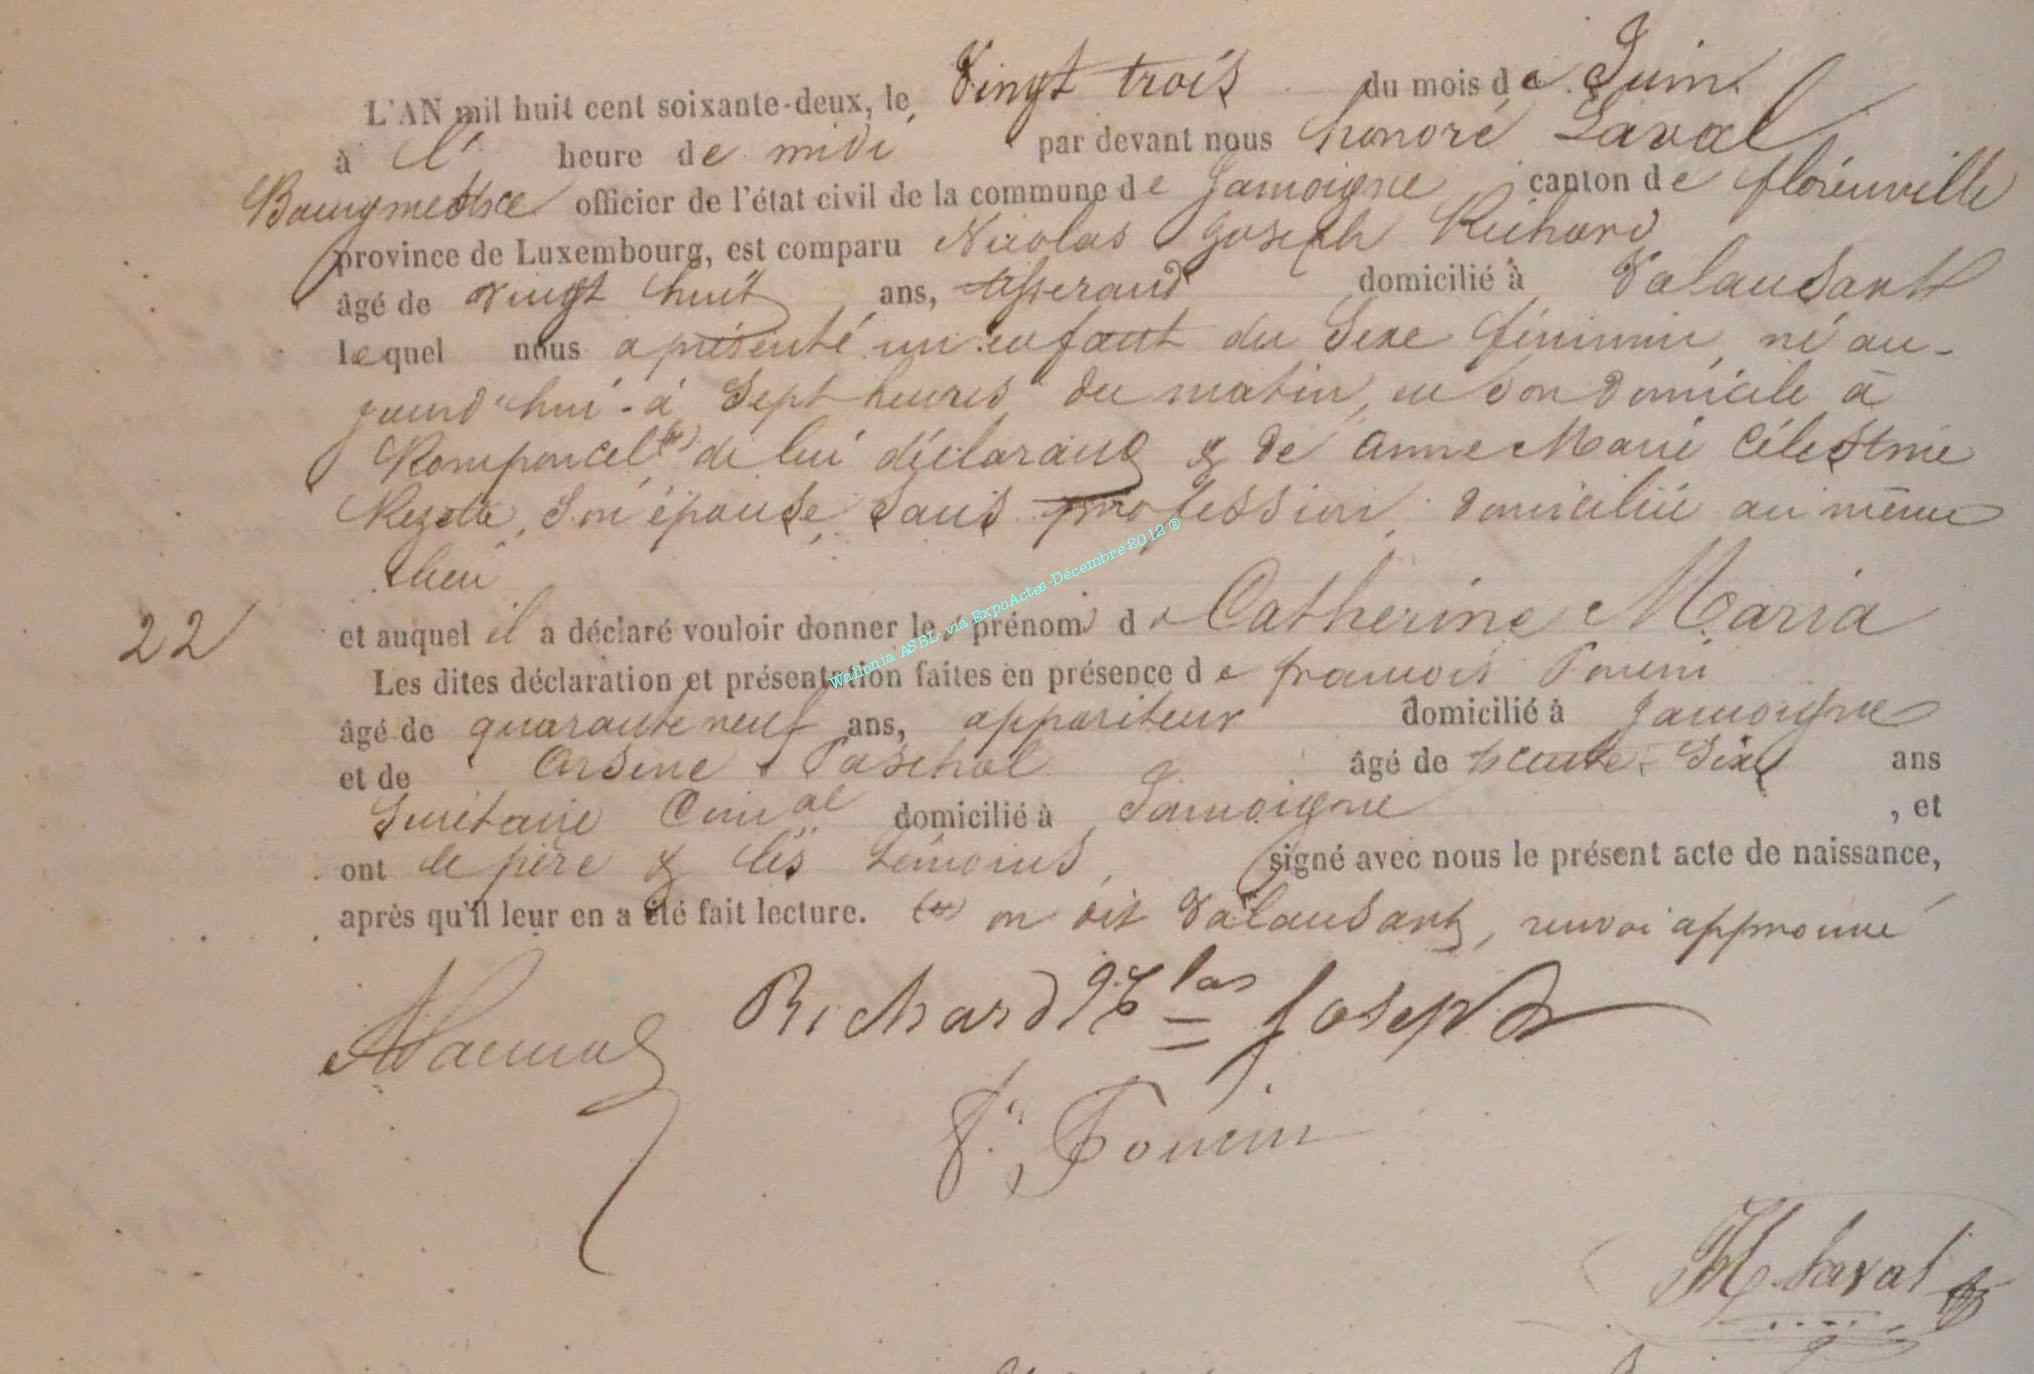 L'AN mil huit cent soixante-deux, le Vingt trois du mois de Juin
à l' heure de midi par devant nous honoré Laval
Bourgmestre officier de l'état civil de la commune de Jamoigne canton de florenville
province de Luxembourg, est comparu Nicolas Joseph Richard
âgé de vingt huit ans, tisserand domicilié à Valansart
lequel nous a présenté un enfant du Sexe féminin, né au-
jourd'hui à Sept heures du matin, en son domicile à
Romponcel (x) de lui déclarant & de Anne Marie Célestine
son épouse, sans profession, domiciliée au même
lieu
22
et auquel il a déclaré vouloir donner les prénoms de Catherine Maria
Les dites déclaration et présentation faites en présence de françois
âgé de quarante neuf ans, appariteur domicilié à Jamoigne
et de Arsène Paschal âgé de trente-Six ans
Secrétaire Com al domicilié à Jamoigne , et
ont le père & les témoins, signé avec nous le présent acte de naissance,
après qu'il leur en a été fait lecture. (x) on dit Valansart, renvoi approuvé
Richard Nlas Joseph
F. Fouin
H Laval
Wallonia ASBL, via ExpoActes-Décembre 2012 ®